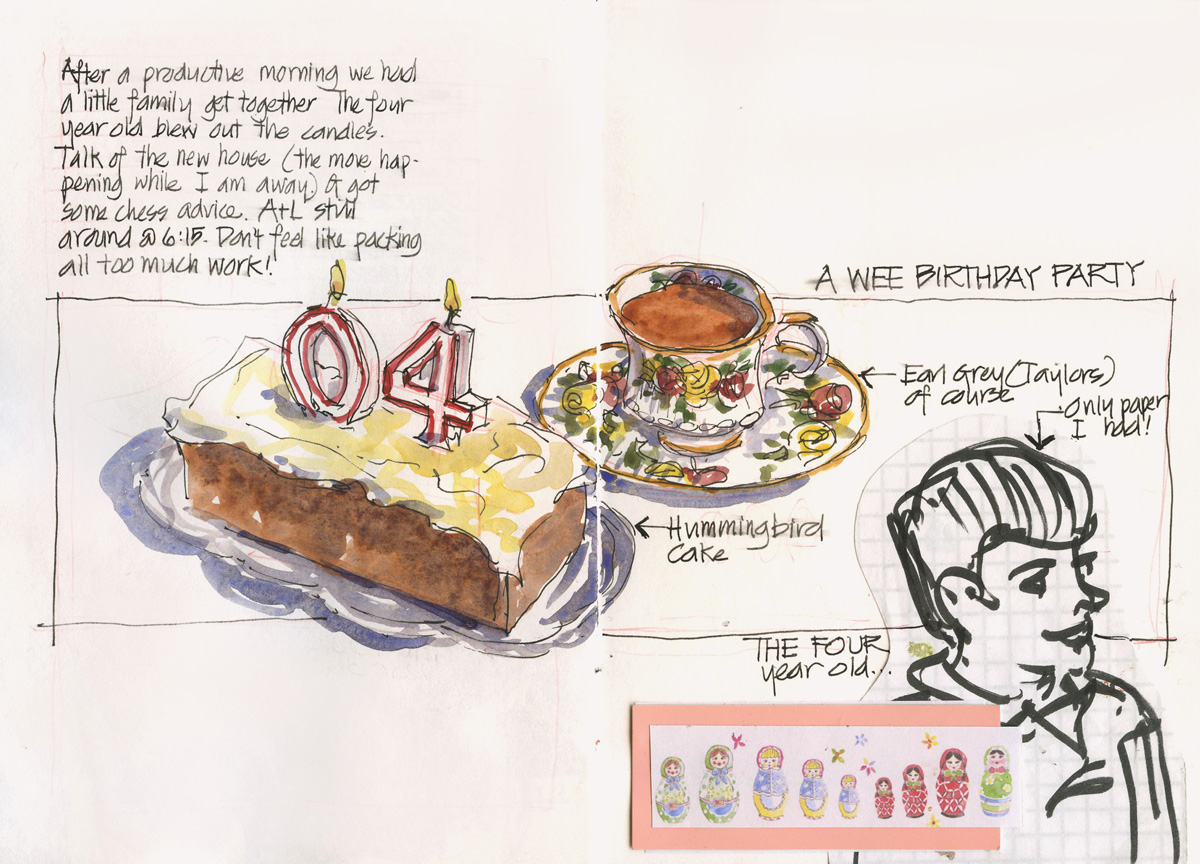 After a productive morning we had
a little family get together The four
year old blew out the candles.
Talk of the new house (the move hap-
pening while I am away) & got
some chess advice. A+L still
around @ 6:15. Don't feel like packing
all too much work!
04
A WEE BIRTHDAY PARTY
Earl Grey (Taylors)
of course
Only paper
I had!
Hummingbird
Cake
THE FOUR
year old...